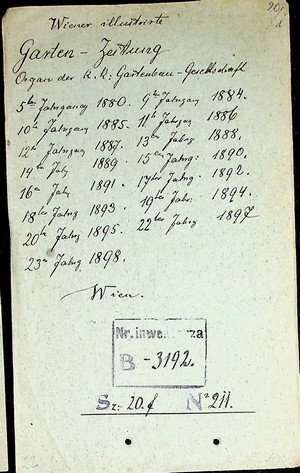 20.f
Wiener illustrirte
Garten-Zeitung
Organ der K. K: Gartenbau-Gesellschaft
5ter Jahrgang 1880. 9ter Jahrgang 1884.
10ter Jahrgang 1885. 11ter Jahrgang 1886
12ter Jahrgang 1887. 13ter Jahrg 1888.
14ter Jahrg 1889. 15ter Jahrg: 1890.
16ter Jahrg 1891. 17ter Jahrg. 1892.
18ter Jahrg 1893. 19ter Jahr: 1894.
20ter Jahrg 1895. 22ter Jahrg 1897
23ter Jahrg 1898.
Wien.
Nr. inwentarza
B - 3192.
Sz: 20.f Nº 211.